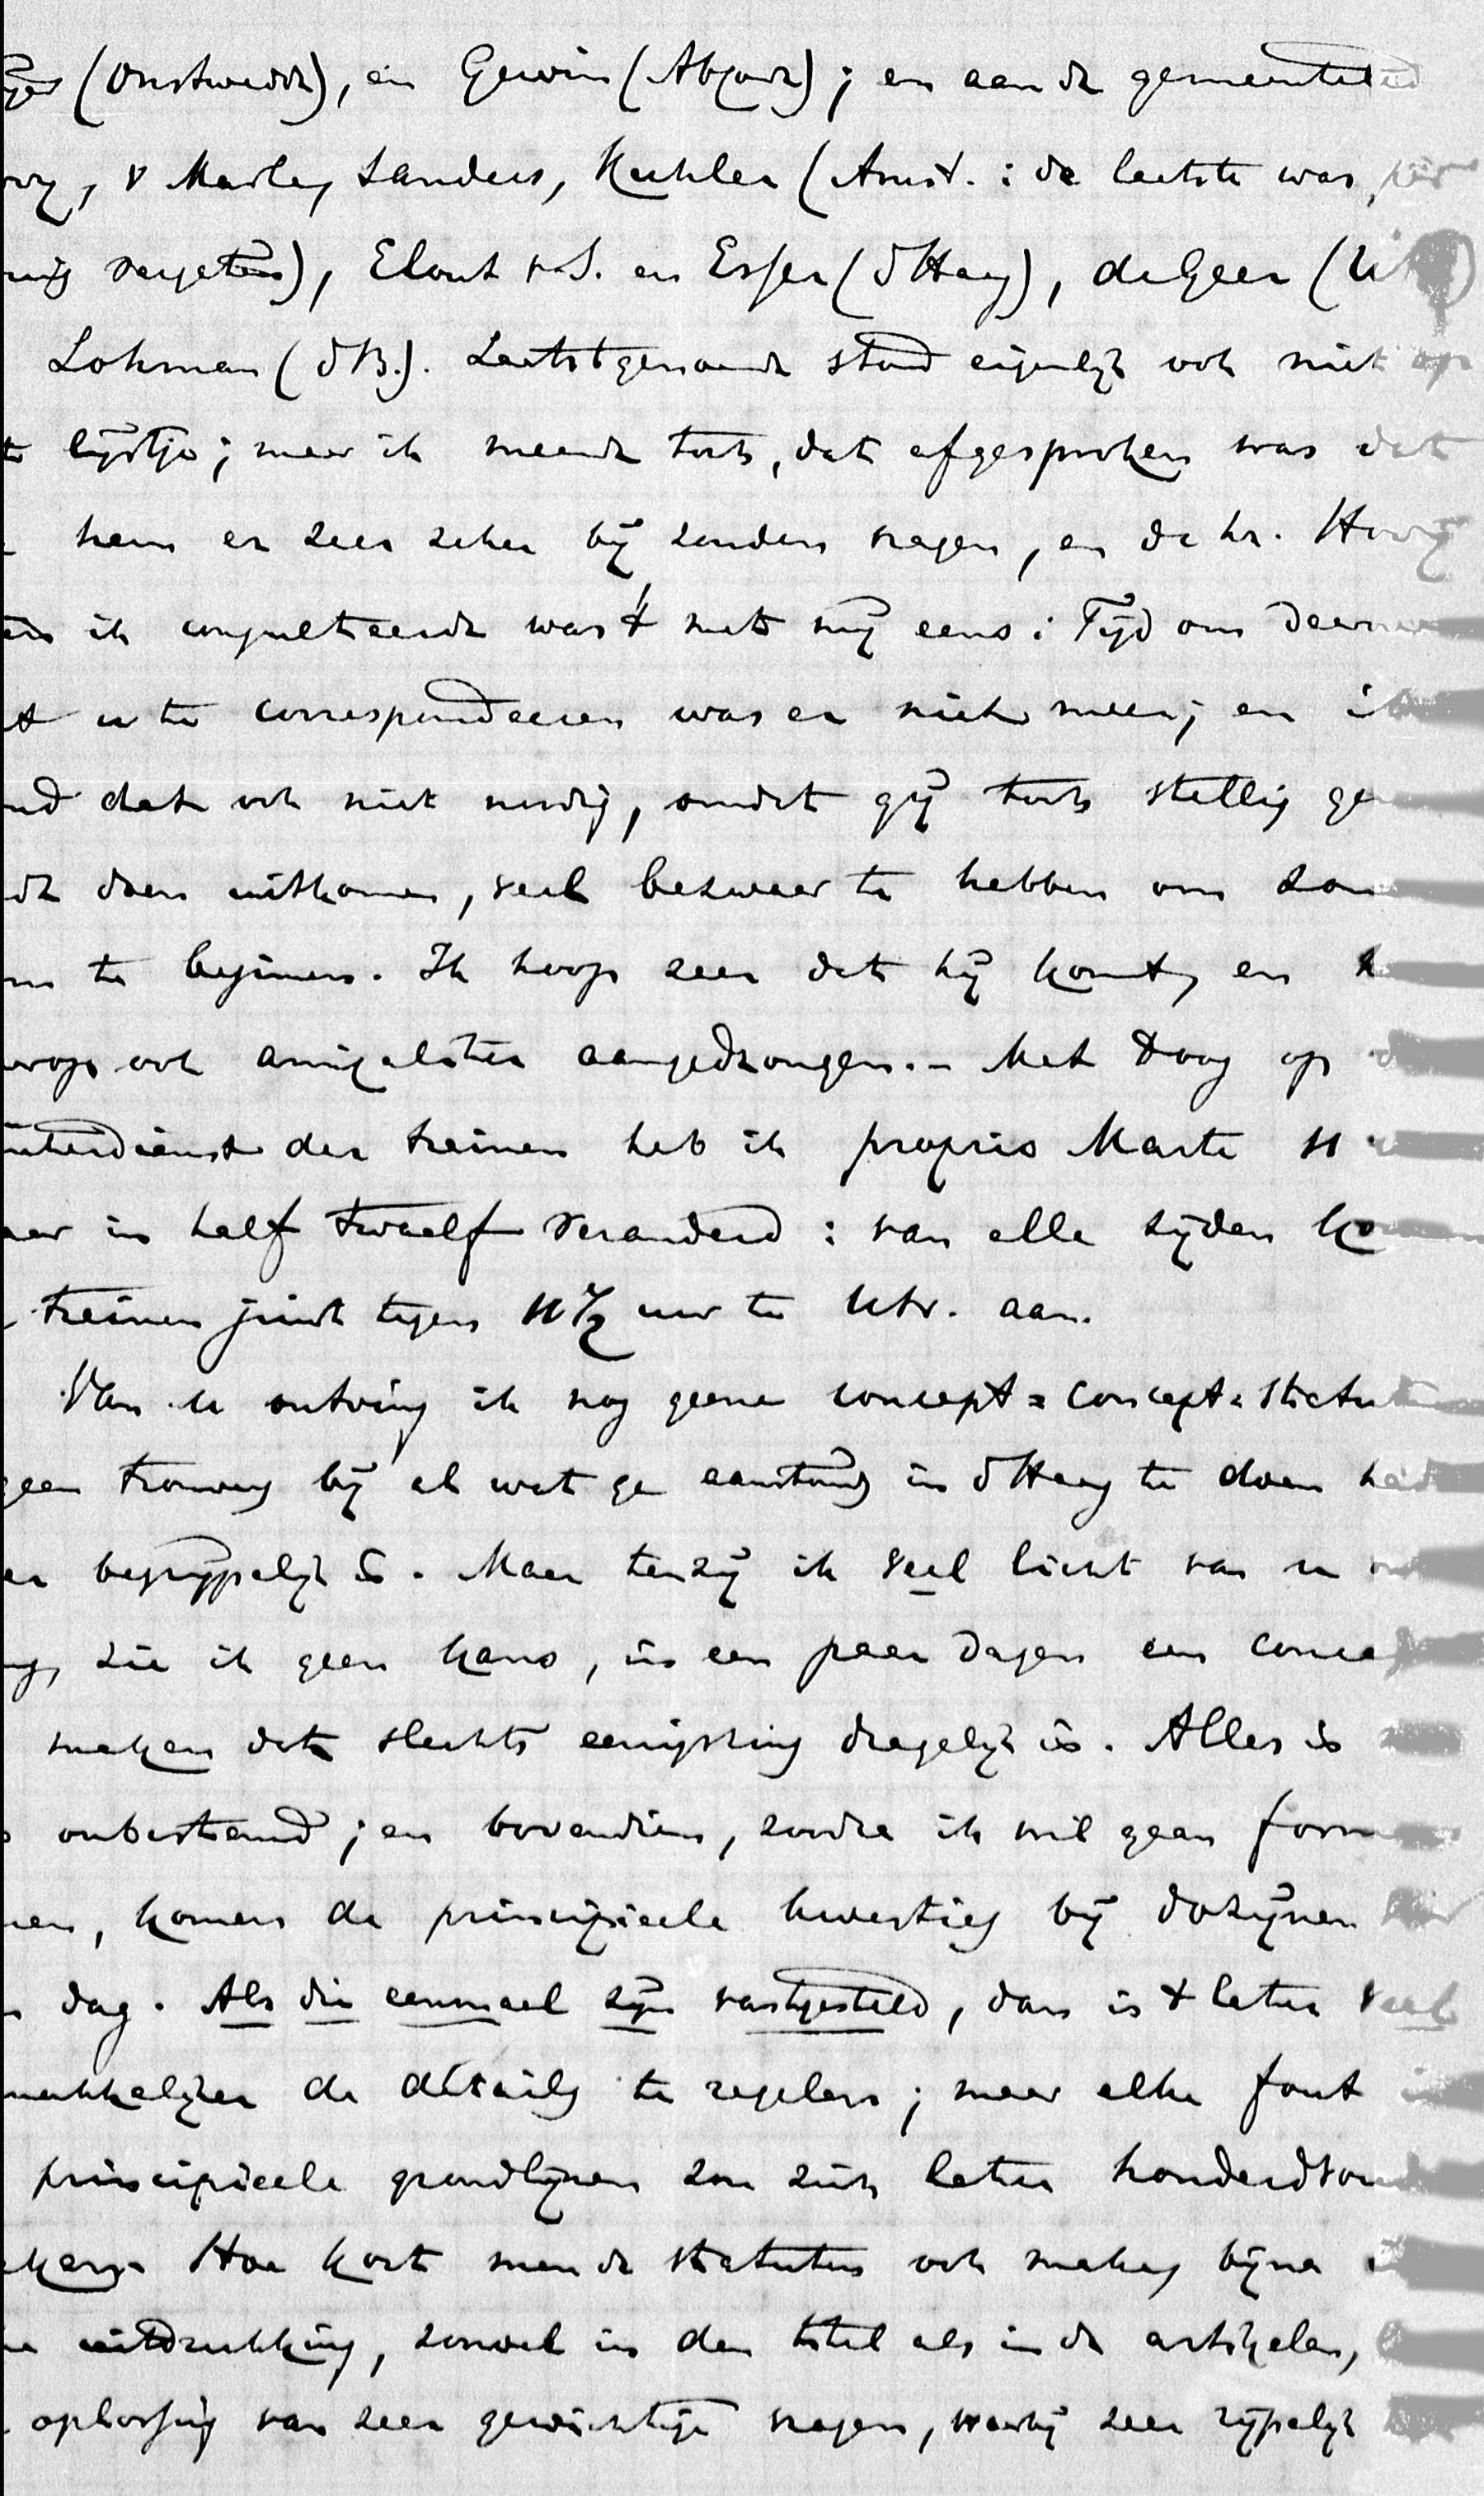 (Onstwedde), en Gewin (Abcoude); en aan de gemeenteleden
v Marle, Sanders, Kuhler (Amst. : de laatste was,
vergeten), Elout v.S. en Esser (d Haag), de Geer (Utr)
Lohman (d B.). Laatstgenoemde stond eigenlijk ook niet op
lijstje; maar ik meende toch, dat afgesproken was dat
hem er zeer zeker bij zouden vragen, en de hr. Hovy
ik consulteerde was 't met mij eens. Tijd om daarover
u te correspondeeren was er niet meer; en ik
dat ook niet noodig, omdat gij toch stellig
doen uitkomen, veel bezwaar te hebben om zon
te beginnen. Ik hoop zeer dat hij komt, en
ook amicaliter aangedrongen. – Met 't oog op
winterdienst der treinen heb ik proprio Marte 11
in half twaalf veranderd : van alle zijden komen
treinen juist tegen 11½ uur te Utr. aan.
Van u ontving ik nog geene concept=concept=statuten
geen trouwens bij al wat ge aanstonds in d Haag te doen hadt
begrijpelijk is. Maar tenzij ik veel licht van u
zie ik geen kans, in een paar dagen een concept
maken dat slechts eenigszins dragelijk is. Alles is
onbestemd; en bovendien, zoodra ik wil gaan form
komen de principieele kwesties bij dozijnen
dag. Als die eenmaal zijn vastgesteld, dan is 't later veel
makkelijker de détails te regelen; maar elke fout in
principieele grondlijnen zou zich later honderdvoud
Hoe kort men de statuten ook make, bijna
uitdrukking, zoowel in den titel als in de artikelen,
oplossing van zeer gewichtige vragen, waarbij zeer rijpelijk